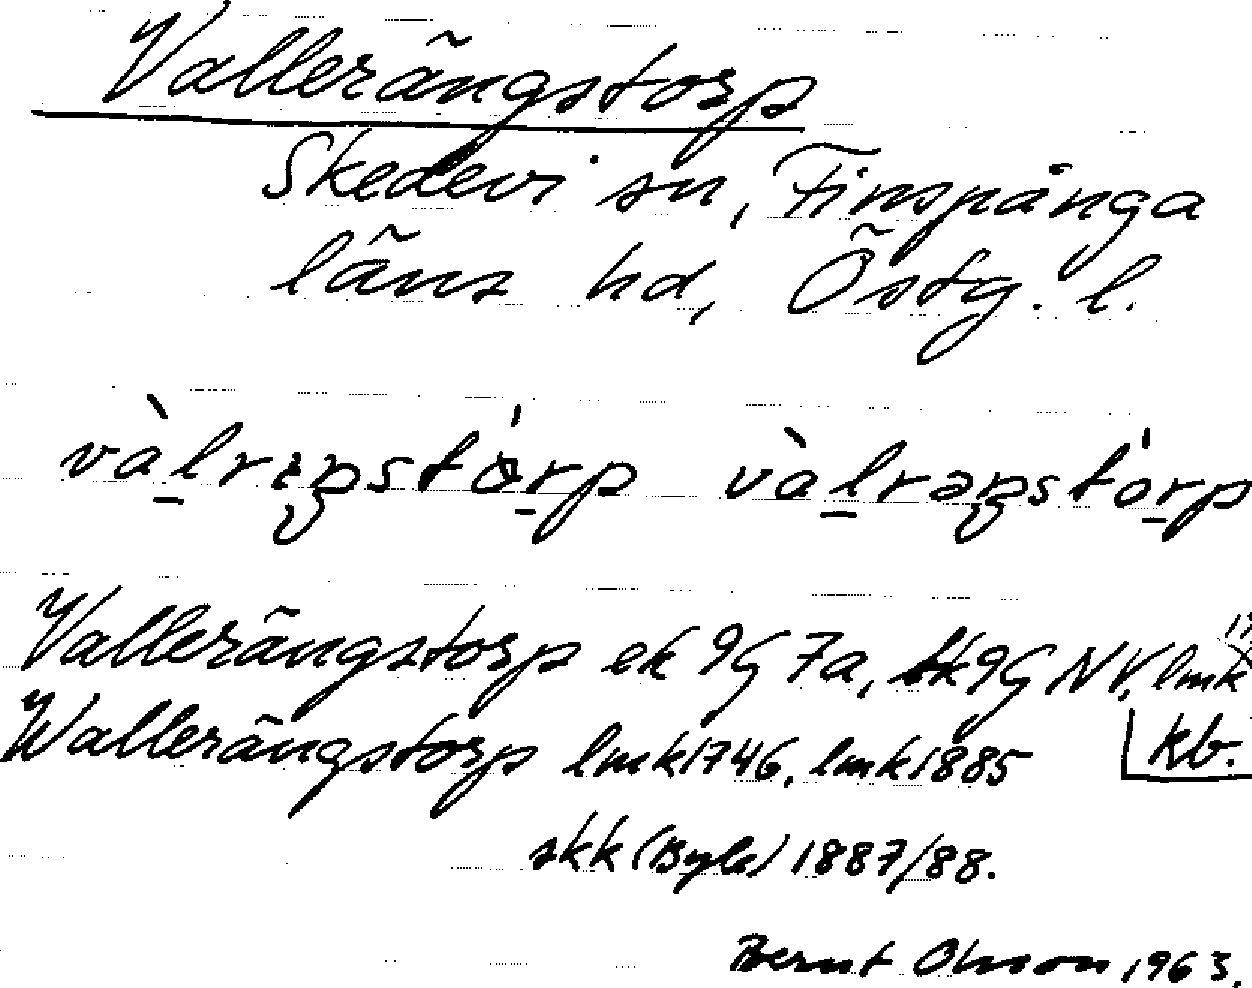 Vallerängstorp
Skedevi sn, Finspånga
läns hd, Östg. l.
vàlrıŋstórp vàlrəŋstórp
Vallerängstorp ek 9G 7a, tk 9G NV, lmk
Wallerängstorp lmk 1746, lmk 1885 kb.
skk (Byle) 1887/88.
Bernt Olsson 1963.